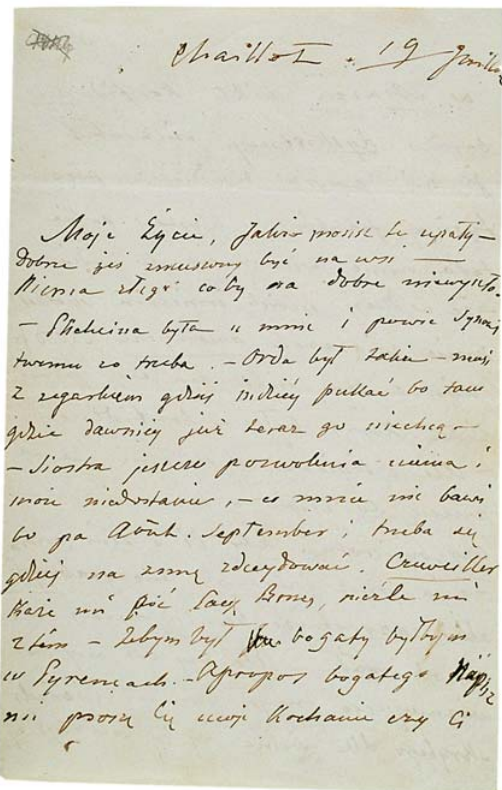 Chaillot. 19 Juillet
Moje Życie, Jakie proszę te upały –
dobrze żeś zmuszony być na wsi –
Niema złego coby na dobre niewyszło.
– była u mnie i powie
twemu co trzeba. – Orda był także – musi
z zegarkiem gdziej indziéj pukać bo tam
gdzie dawniej już teraz go niechcą –
– Siostra jeszcze pozwolenia niema i
może niedostanie, – co mnie nie bawi
bo po Août. September i trzeba się
gdziej na zimę zdecydować. Cruveiller
Każe mi pić Eaux Bonnes, nieźle mi
z tém – Żebym był bogaty byłbym
w Pyreneach. – Apropos bogatego Napisz
mi proszę Cię moje Kochanie czy Ci